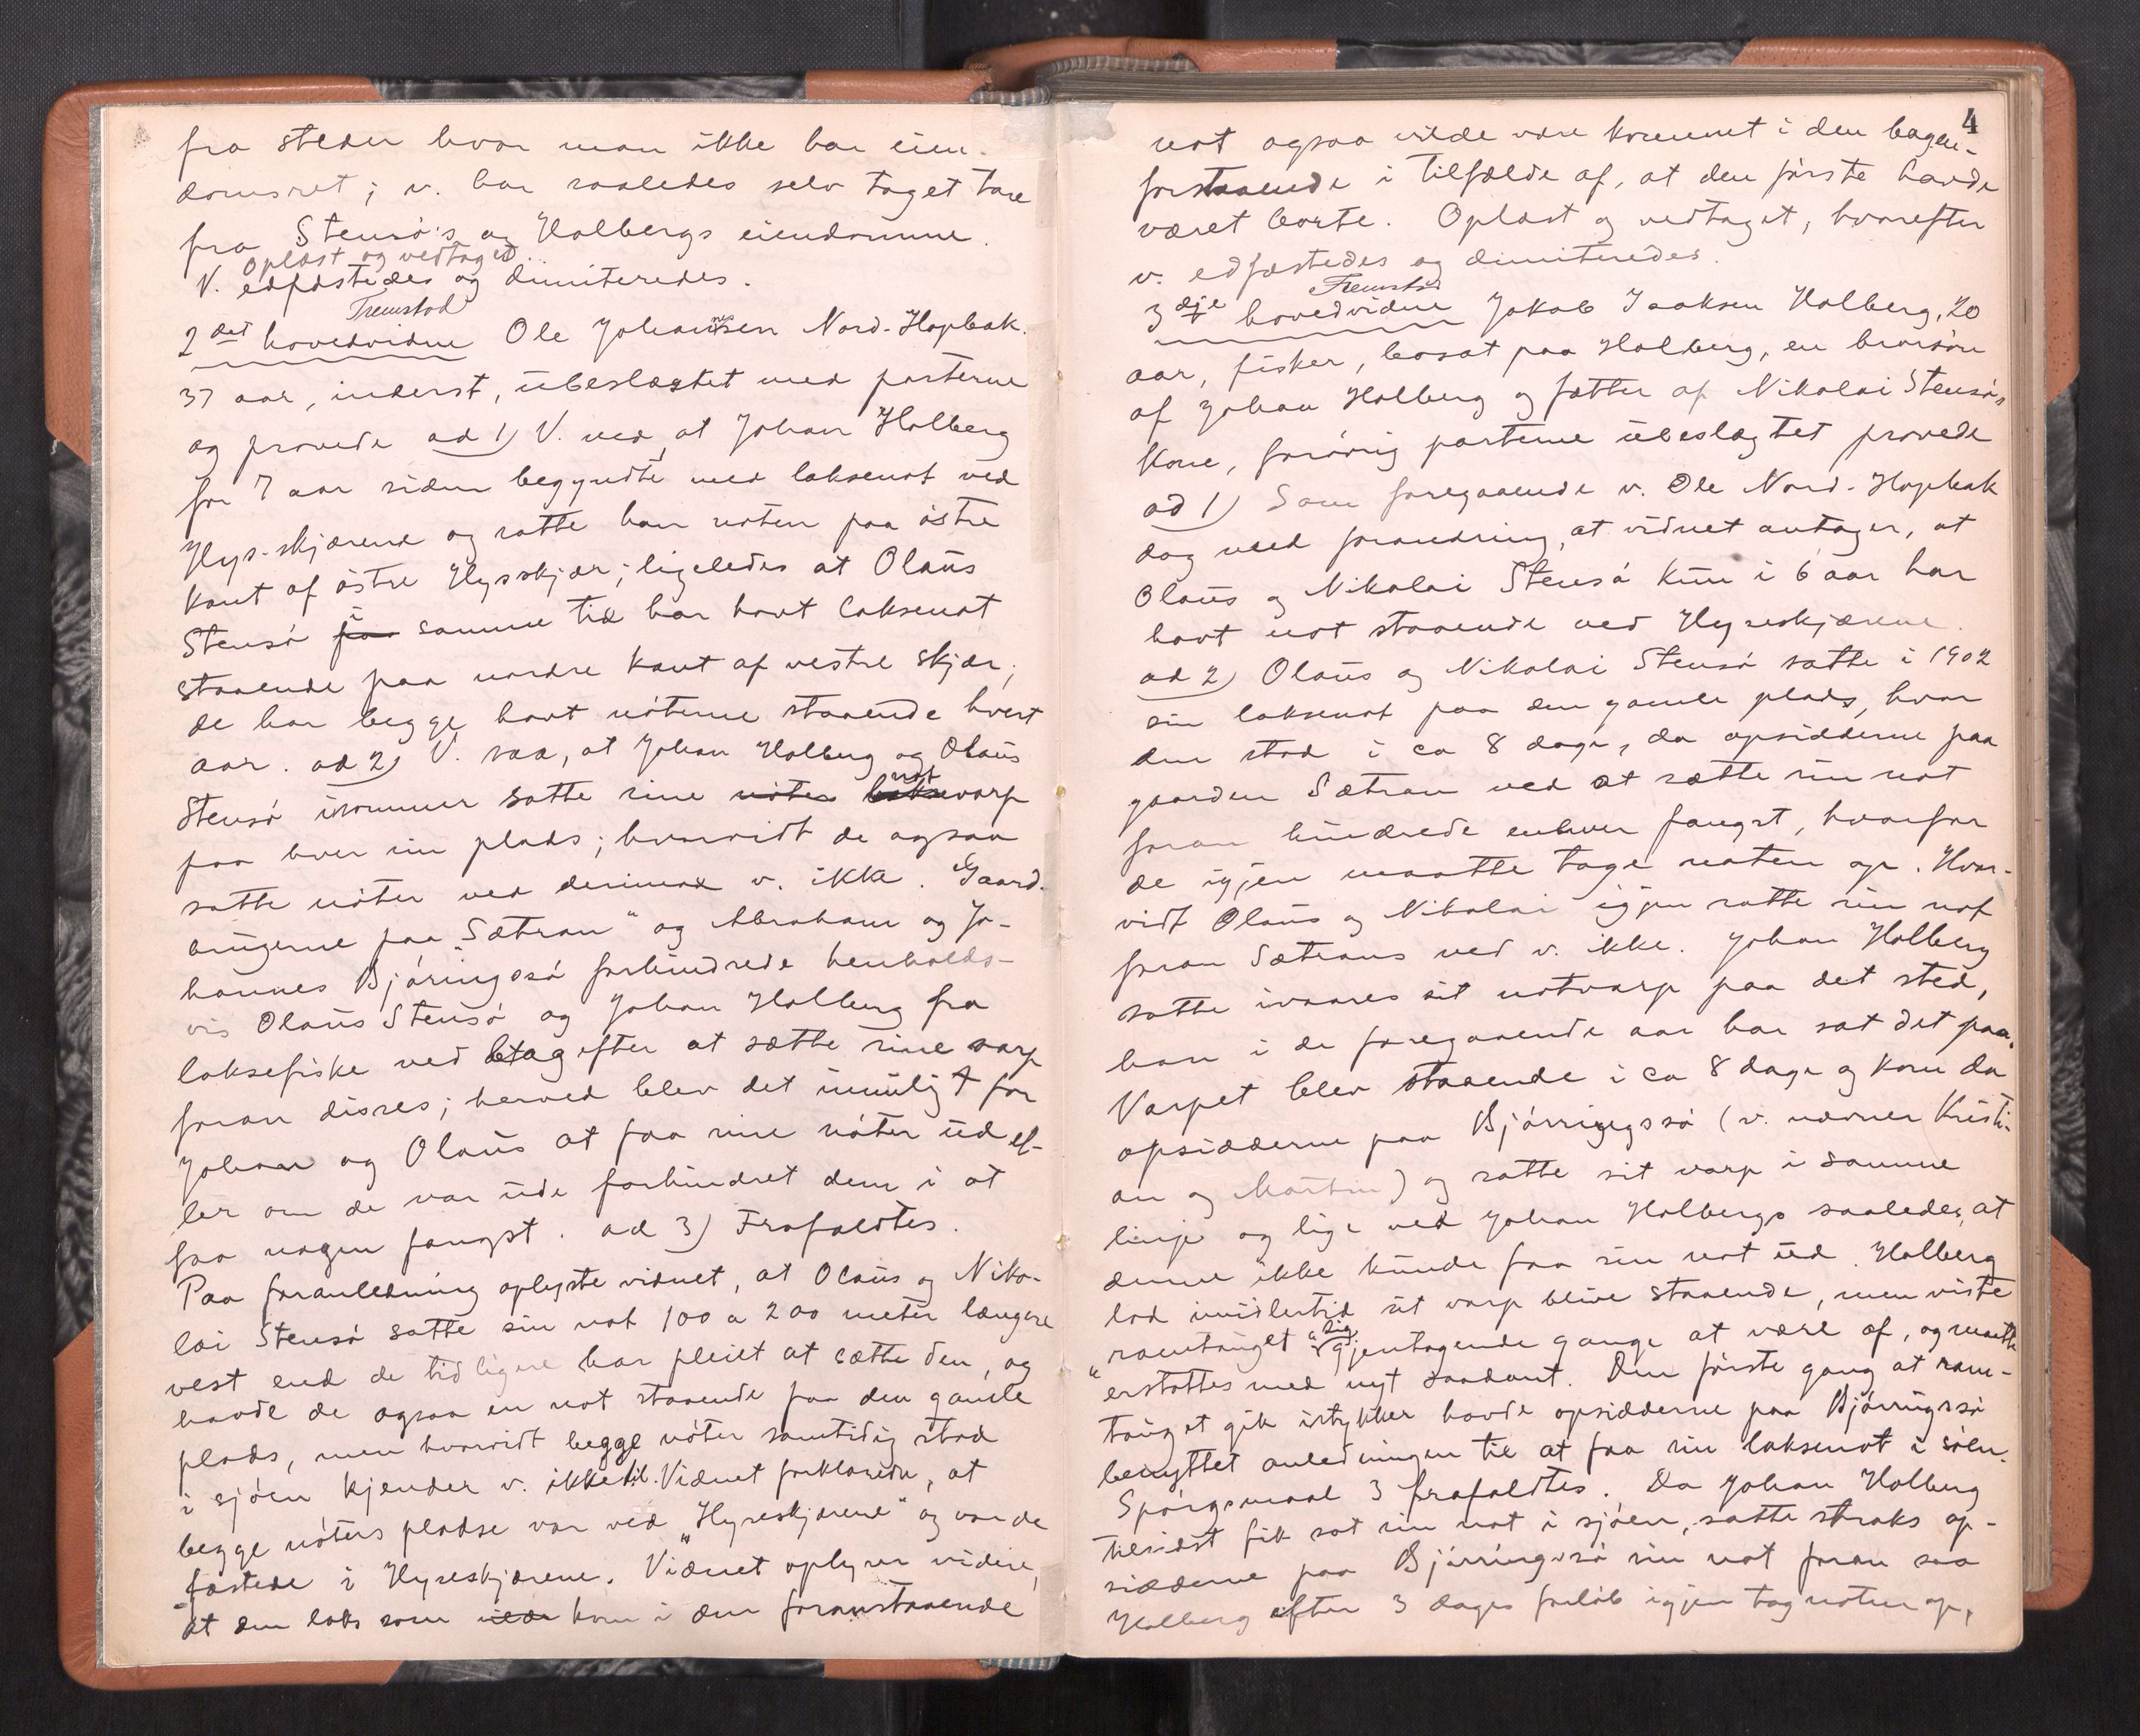 fra steder hvor man ikke har eien-
domsret; v. har saaledes selv taget tare
fra Stensø's og Holbergs eiendomme.
Oplæst og vedtaget.
V. edfæstedes og dimiteredes.
Fremstod
2det hovedvidne Ole Johannesen Nord-Hopbak.
37 aar, inderst, ubeslægtet med parterne
og provede ad 1) V. ved, at Johan Holberg
for 7 aar siden begyndte med laksenot ved
Hys-skjærene og satte han noten paa østre
kant af østre Hysskjær; ligeledes at Olaus
Stensø i samme tid har havt laksenot
staaende paa nordre kant af vestre skjær;
de har begge havt nøterne staaende hvert
aar. ad 2) V. saa, at Johan Holberg og Olaus
Stensø isommer satte sine nøter notvarp
paa hver sin plads; hvorvidt de ogsaa
satte nøter ved derimod v. ikke. Gaard-
brugerne paa "Sætran" og Abraham og Jo-
hannes Bjøringsø forhindrede henholds-
vis Olaus Stensø og Johan Holberg fra
laksefiske ved etagefter at sætte sine varp
foran disses; herved blev det umuligt for
Johan og Olaus at faa sine nøter ud el-
ler om de var ude forhindret dem i at
faa nogen fangst. ad 3) Frafaldtes.
Paa foranledning oplyste vidnet, at Olaus og Niko-
lai Stensø satte sin not 100 a 200 meter længere
vest end de tidligere har pleiet at sætte den, og
havde de ogsaa en not staaende paa den gamle
plads, men hvorvidt begge nøter samtidig stod
i sjøen kjender v. ikke til. Vidnet forklarede, at
begge nøters pladse var ved "Hyreskjærene" og var de
fæstede i Hyreskjærene. Vidnet oplyser videre,
at den laks som vilde kom i den foranstaaende
4
not ogsaa vilde være kommet i den bagen-
forstaaende i tilfælde af, at den første havde
været borte. Oplæst og vedtaget, hvorefter
v. edfæstedes og dimiteredes.
Fremstod
3dje hovedvidne Jakob Isaksen Holberg, 20
aar, fisker, bosat paa Holberg, en brorsøn
af Johan Holberg og fætter af Nikolai Stensøs
kone, forøvrig parterne ubeslægtet provede
ad 1) Som foregaaende v. Ole Nord-Hopbak
dog med forandring, at vidnet antager, at
Olaus og Nikolai Stensø kun i 6 aar har
havt not staaende ved Hyreskjærene.
ad 2) Olaus og Nikolai Stensø satte i 1902
sin laksenot paa den gamle plads, hvor
den stod i ca 8 dage, da opsidderne paa
gaarden Sætran ved at sætte sin not
foran hindrede enhver fangst, hvorfor
de igjen maatte tage noten op. Hvor-
vidt Olaus og Nikolai igjen satte sin not
foran Sætrans ved v. ikke. Johan Holberg
satte ivaares sit notvarp paa det sted,
han i de foregaaende aar har sat det paa.
Varpet blev staaende i ca 8 dage og kom da
opsidderne paa Bjørringsø (v. nævner Kristi-
an og Martin) og satte sit varp i samme
linje og lige ved Johan Holbergs saaledes, at
denne ikke kunde faa sin not ud. Holberg
lod imidlertid sit varp blive staaende, men viste
"ramtauget" sig gjentagende gange at være af, og maatte
erstattes med nyt saadant. Den første gang at ram-
tauget gik istykker havde opsidderne paa Bjørringsø
benyttet anledningen til at faa sin laksenot i søen.
Spørgsmaal 3 frafaldtes. Da Johan Holberg
tilsidst fik sat sin not i sjøen, satte straks op-
sidderne paa Bjørringsø sin not foran saa
Holberg efter 3 dages forløb igjen tog noten op,